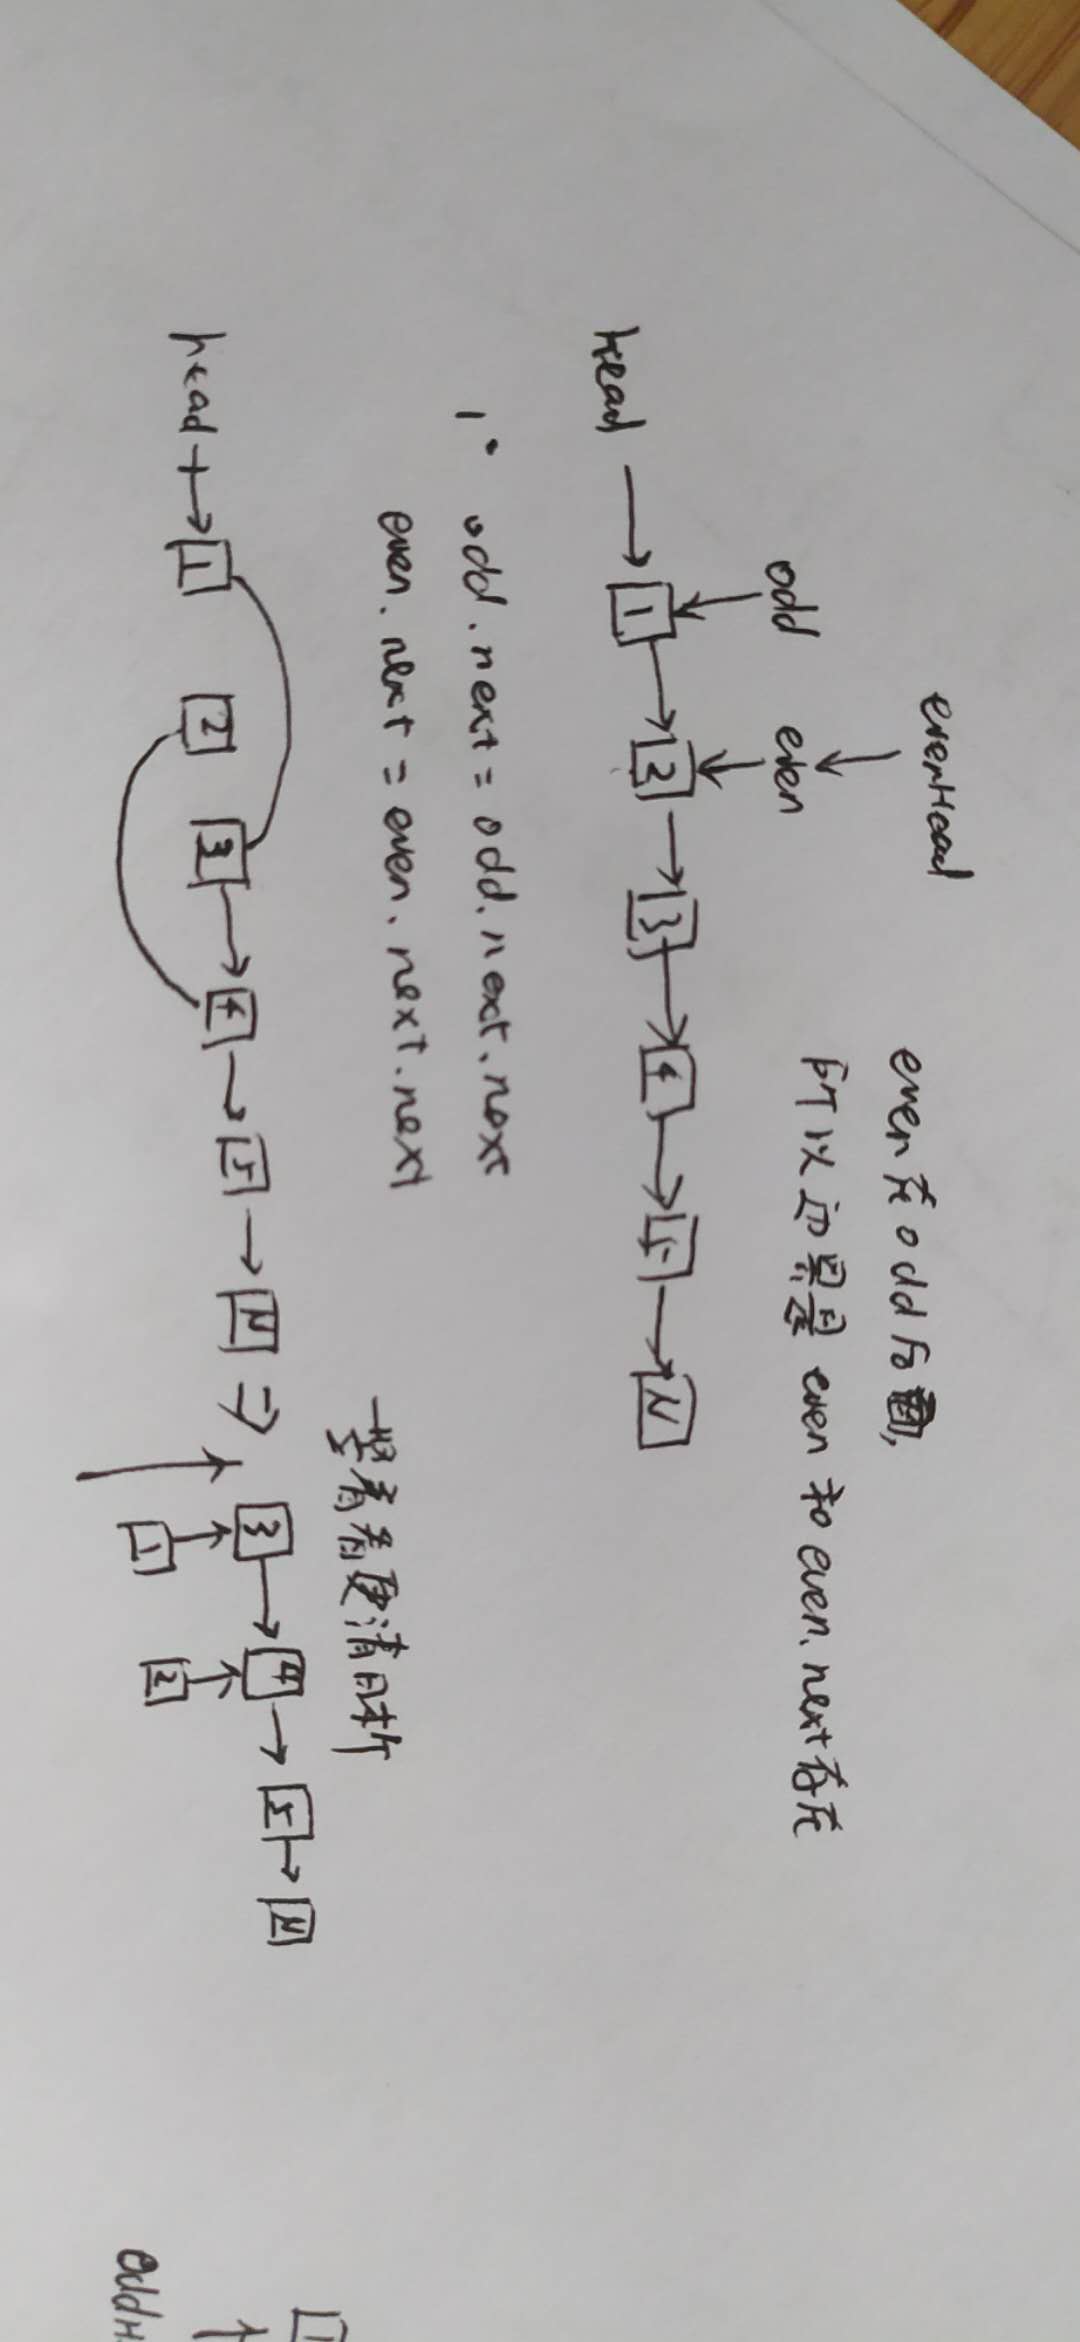 evenHead
even在odd后面,
所以边界是 even 和 even.next存在
odd even
head 1 2 3 4 5 N
1° odd.next = odd.next.next
even.next = even.next.next
竖着看更清晰
head 1 2 3 4 5 N ⇒ 3 4 5 N
1 2
1
oddH